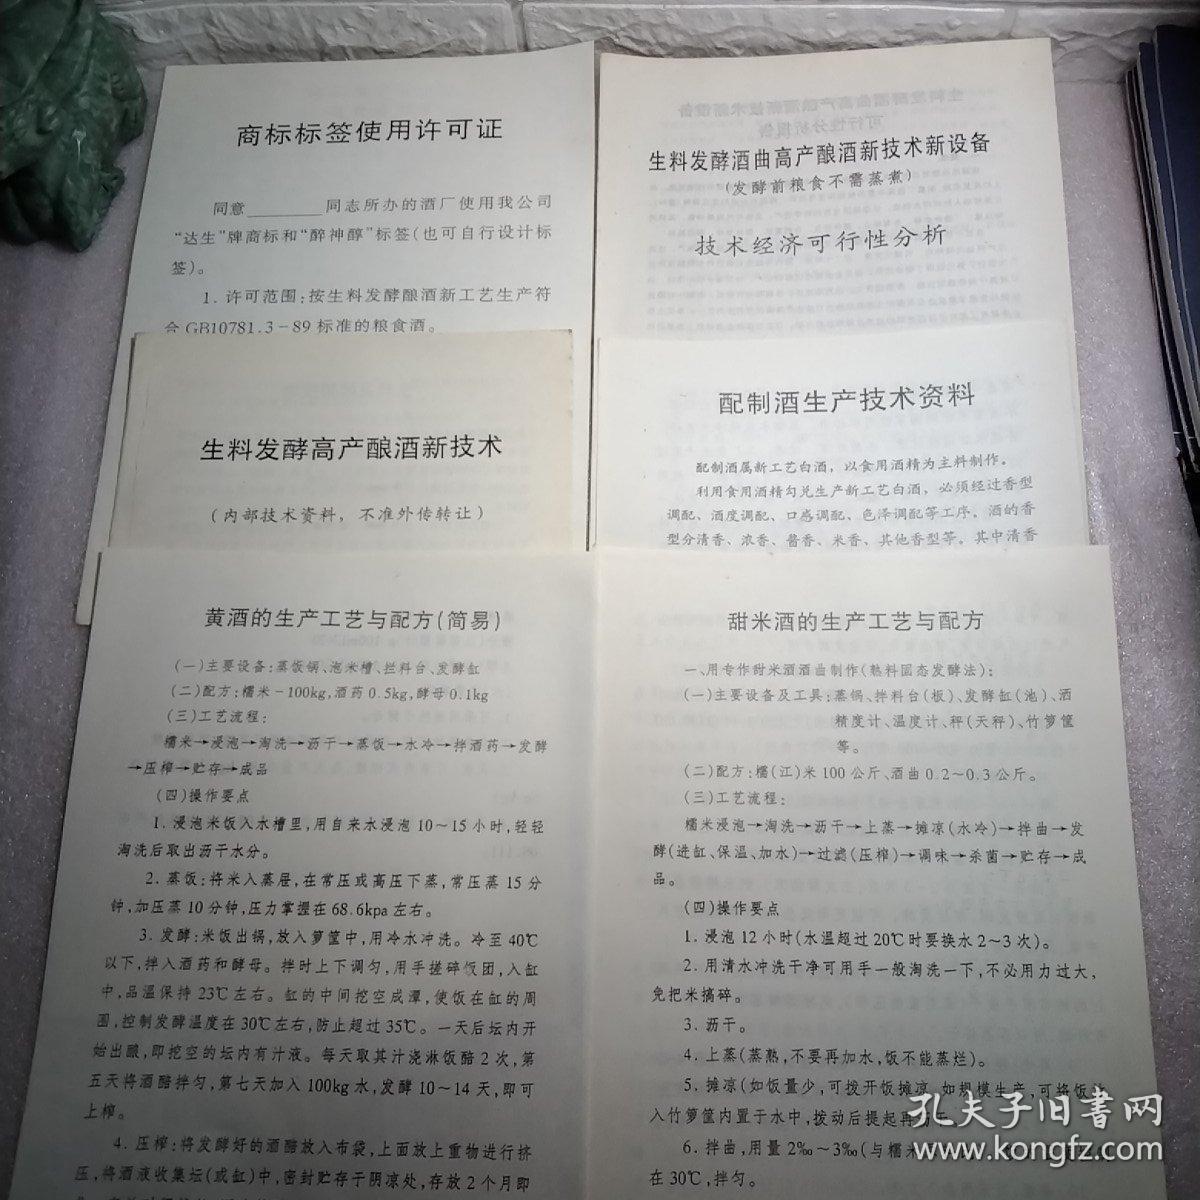 商标标签使用许可证
同意________同志所办的酒厂使用我公司
“达生”牌商标和“醉神醇”标签(也可自行设计标
签)。
1. 许可范围:按生料发酵酿酒新工艺生产符
合GB10781.3-89标准的粮食酒。
生料发酵酒曲高产酿酒新技术新设备
(发酵前粮食不需蒸煮)
技术经济可行性分析
生料发酵高产酿酒新技术
(内部技术资料，不准外传转让)
配制酒生产技术资料
配制酒属新工艺白酒，以食用酒精为主料制作。
利用食用酒精勾兑生产新工艺白酒，必须经过香型
调配、酒度调配、口感调配、色泽调配等工序。酒的香
型分清香、浓香、酱香、米香、其他香型等。其中清香
黄酒的生产工艺与配方(简易)
(一)主要设备:蒸饭锅、泡米槽、拦料台、发酵缸
(二)配方:糯米-100kg,酒药0.5kg,酵母0.1kg
(三)工艺流程:
糯米→浸泡→淘洗→沥干→蒸饭→水冷→拌酒药→发酵
→压榨→贮存→成品
(四)操作要点
1. 浸泡米饭入水槽里,用自来水浸泡10~15小时,轻轻
淘洗后取出沥干水分。
2. 蒸饭:将米入蒸屉,在常压或高压下蒸,常压蒸15分
钟,加压蒸10分钟,压力掌握在68.6kpa左右。
3. 发酵:米饭出锅,放入箩筐中,用冷水冲洗。冷至40℃
以下,拌入酒药和酵母。拌时上下调匀,用手搓碎饭团,入缸
中,品温保持23℃左右。缸的中间挖空成潭,使饭在缸的周
围,控制发酵温度在30℃左右,防止超过35℃。一天后坛内开
始出酿,即挖空的坛内有汁液。每天取其汁浇淋饭醅2次,第
五天将酒醅拌匀,第七天加入100kg水,发酵10~14天,即可
上榨。
4. 压榨:将发酵好的酒醅放入布袋,上面放上重物进行挤
压,将酒液收集坛(或缸)中,密封贮存于阴凉处,存放2个月即
甜米酒的生产工艺与配方
一、用专作甜米酒酒曲制作(熟料固态发酵法):
(一)主要设备及工具:蒸锅、拌料台(板)、发酵缸(池)、酒
精度计、温度计、秤(天秤)、竹箩筐
等。
(二)配方:糯(江)米100公斤、酒曲0.2~0.3公斤。
(三)工艺流程:
糯米浸泡→淘洗→沥干→上蒸→摊凉(水冷)→拌曲→发
酵(进缸、保温、加水)→过滤(压榨)→调味→杀菌→贮存→成
品。
(四)操作要点
1. 浸泡12小时(水温超过20℃时要换水2~3次)。
2. 用清水冲洗干净可用手一般淘洗一下,不必用力过大,
免把米搞碎。
3. 沥干。
4. 上蒸(蒸熟,不要再加水,饭不能蒸烂)。
5. 摊凉(如饭量少,可拨开饭摊凉,如规模生产,可将饭
入竹箩筐内置于水中,拨动后提起再沥干
6. 拌曲,用量2‰~3‰(与糯米
在30℃,拌匀。
孔夫子旧书网
www.kongfz.com